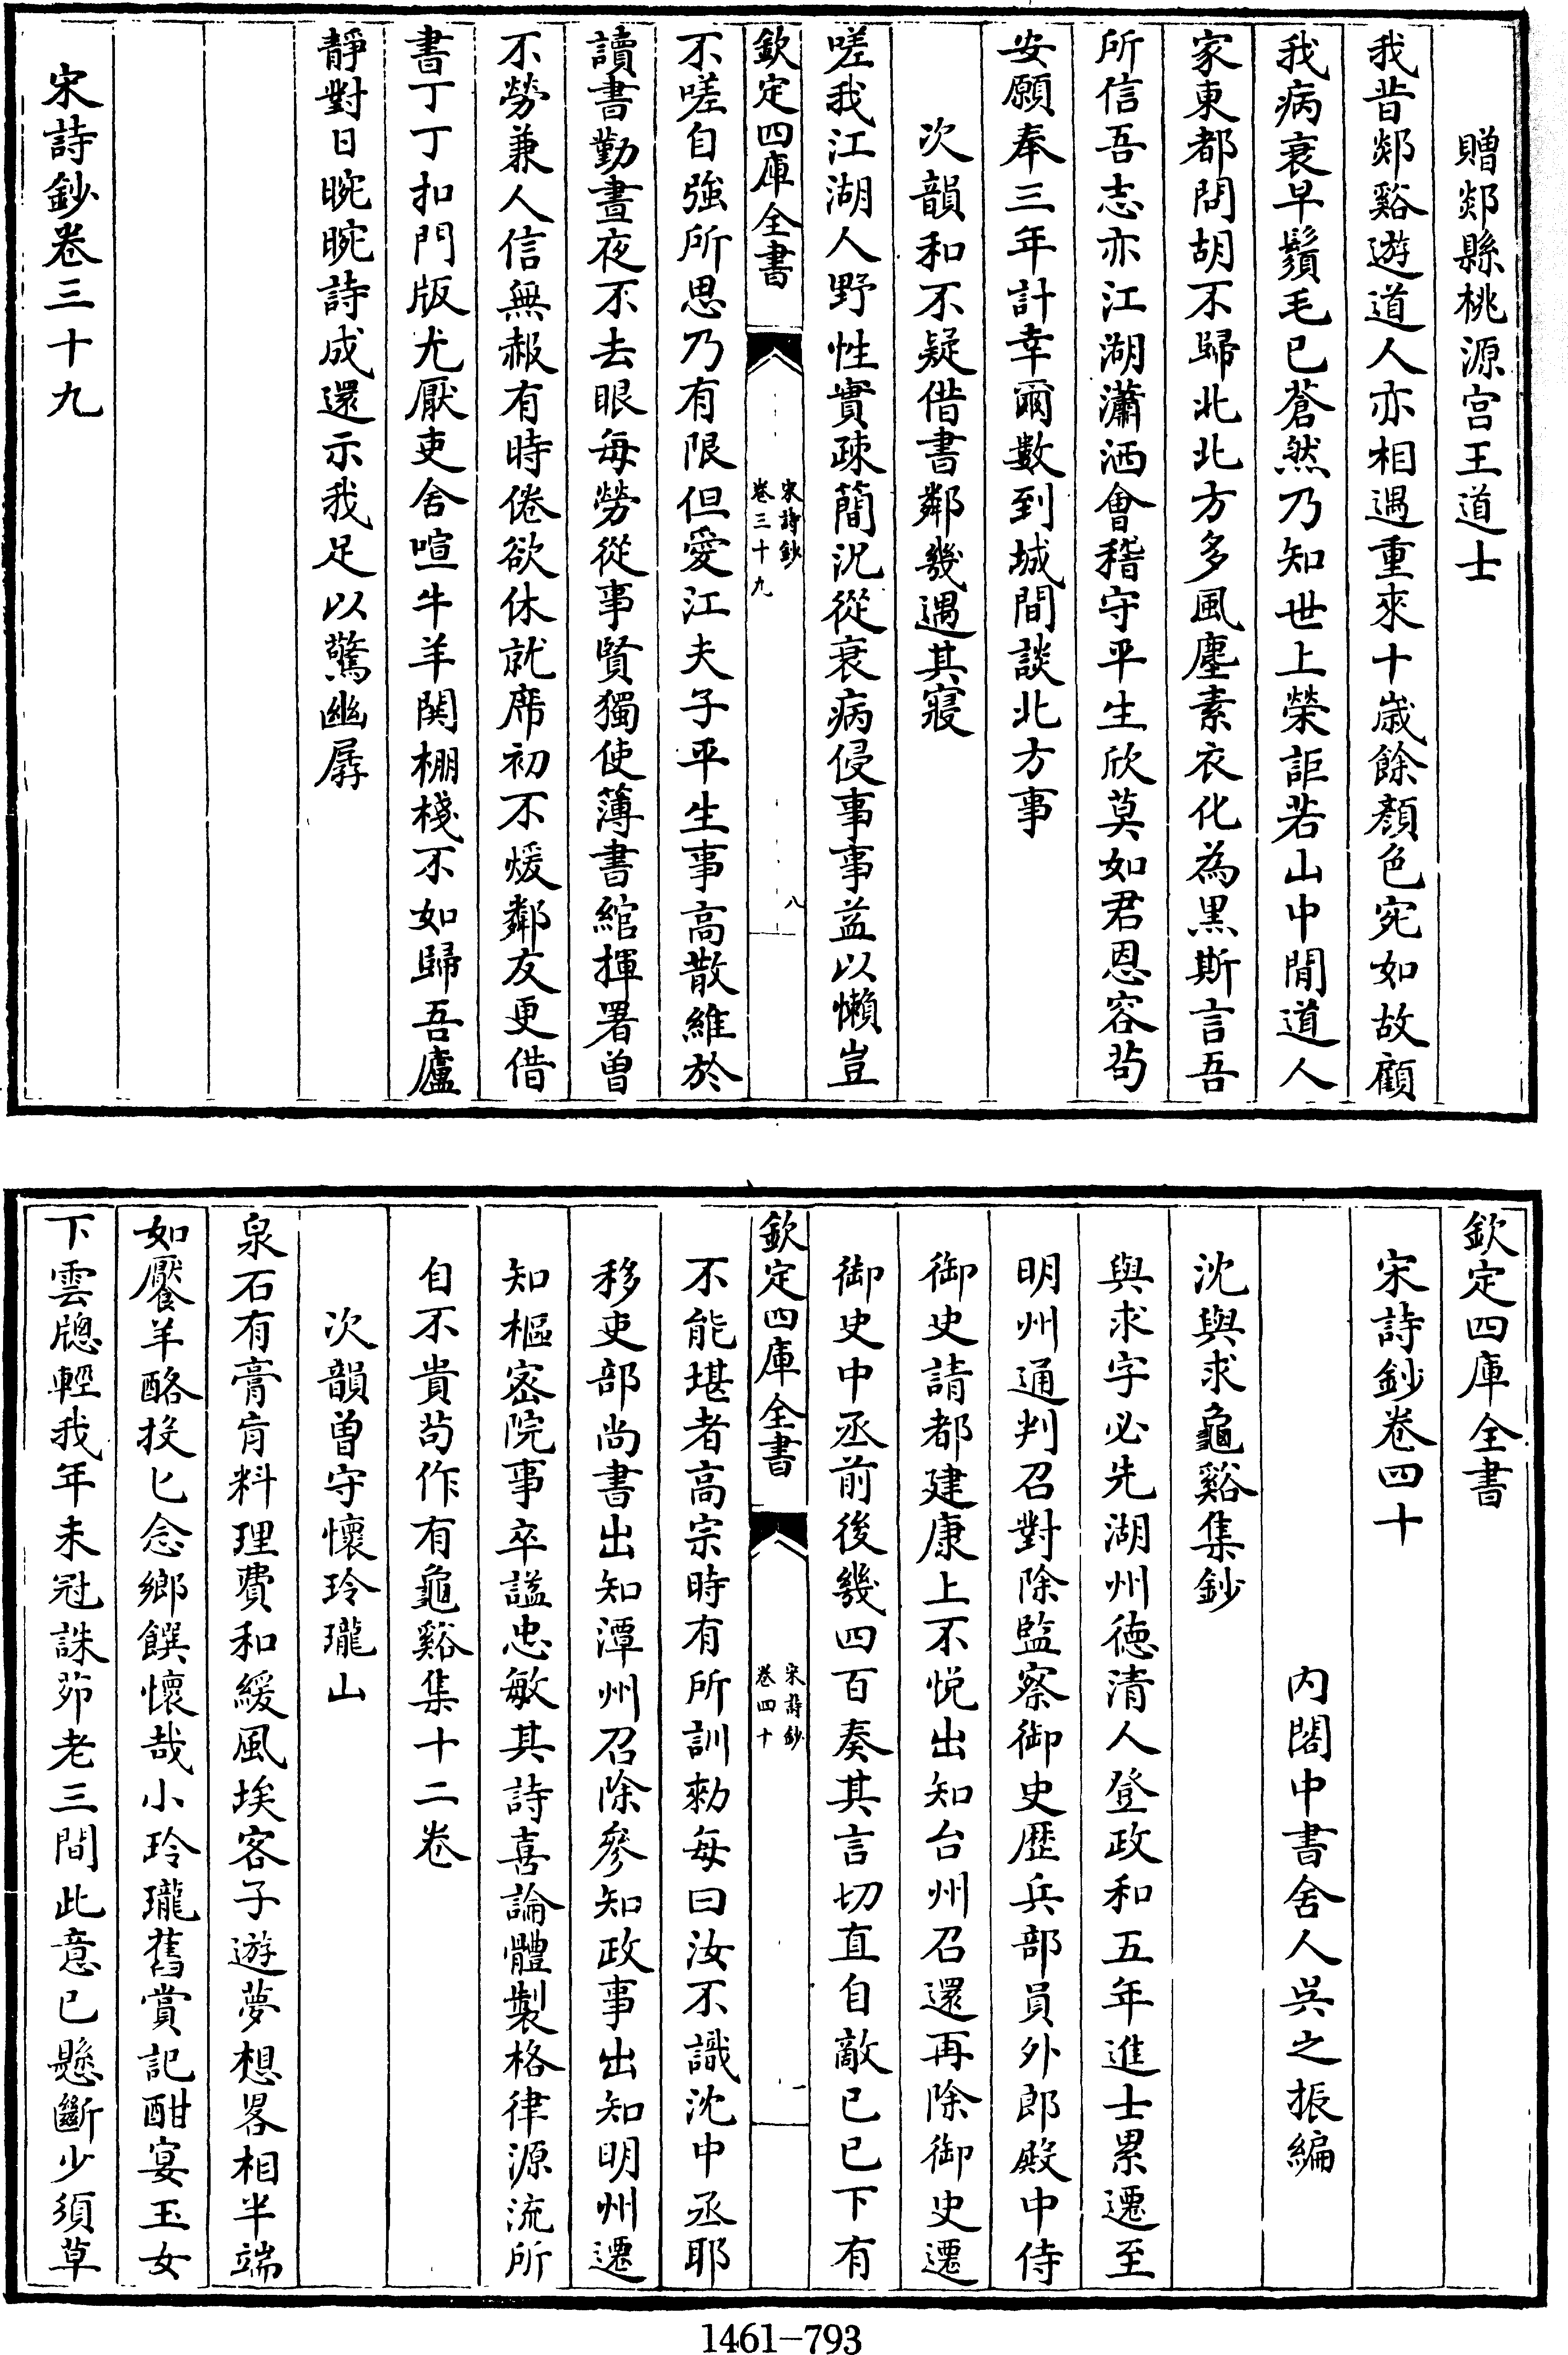 贈郯縣桃源宫王道士
我昔郯谿遊道人亦相遇重來十歲餘顏色宛如故顧
我病衰早鬚毛已蒼然乃知世上榮詎若山中閒道人
家東都問胡不歸北北方多風塵素衣化為黑斯言吾
所信吾志亦江湖瀟洒會稽守平生欣莫如君恩容茍
安願奉三年計幸爾數到城間談北方事
次韻和不疑借書鄰幾遇其寢
嗟我江湖人野性實疎簡況從衰病侵事事益以懶豈
欽定四庫全書
宋詩鈔
卷三十九
八
不嗟自強所思乃有限但愛江夫子平生事高散維於
讀書勤晝夜不去眼每勞從事賢獨使薄書綰揮署曾
不勞兼人信無赧有時倦欲休就席初不煖鄰友更借
書丁丁扣門版尤厭吏舍喧牛羊閧棚棧不如歸吾廬
靜對日晼晼詩成還示我足以驚幽孱
宋詩鈔卷三十九
欽定四庫全書
宋詩鈔卷四十
内閣中書舍人吳之振編
沈與求龜谿集鈔
與求字必先湖州德清人登政和五年進士累遷至
明州通判召對除監察御史歷兵部員外郎殿中侍
御史請都建康上不悦出知台州召還再除御史遷
御史中丞前後幾四百奏其言切直自敵已已下有
欽定四庫全書
宋詩鈔
卷四十
一
不能堪者高宗時有所訓勑每曰汝不識沈中丞耶
移吏部尚書出知潭州召除參知政事出知明州遷
知樞密院事卒諡忠敏其詩喜論體製格律源流所
自不貴茍作有龜谿集十二卷
次韻曾守懷玲瓏山
泉石有膏肓料理費和緩風埃客子遊夢想畧相半端
如饜羊酪投匕念鄉饌懷哉小玲瓏舊賞記酣宴玉女
下雲牕輕我年未冠誅茆老三間此意已懸斷少須草
1461-793